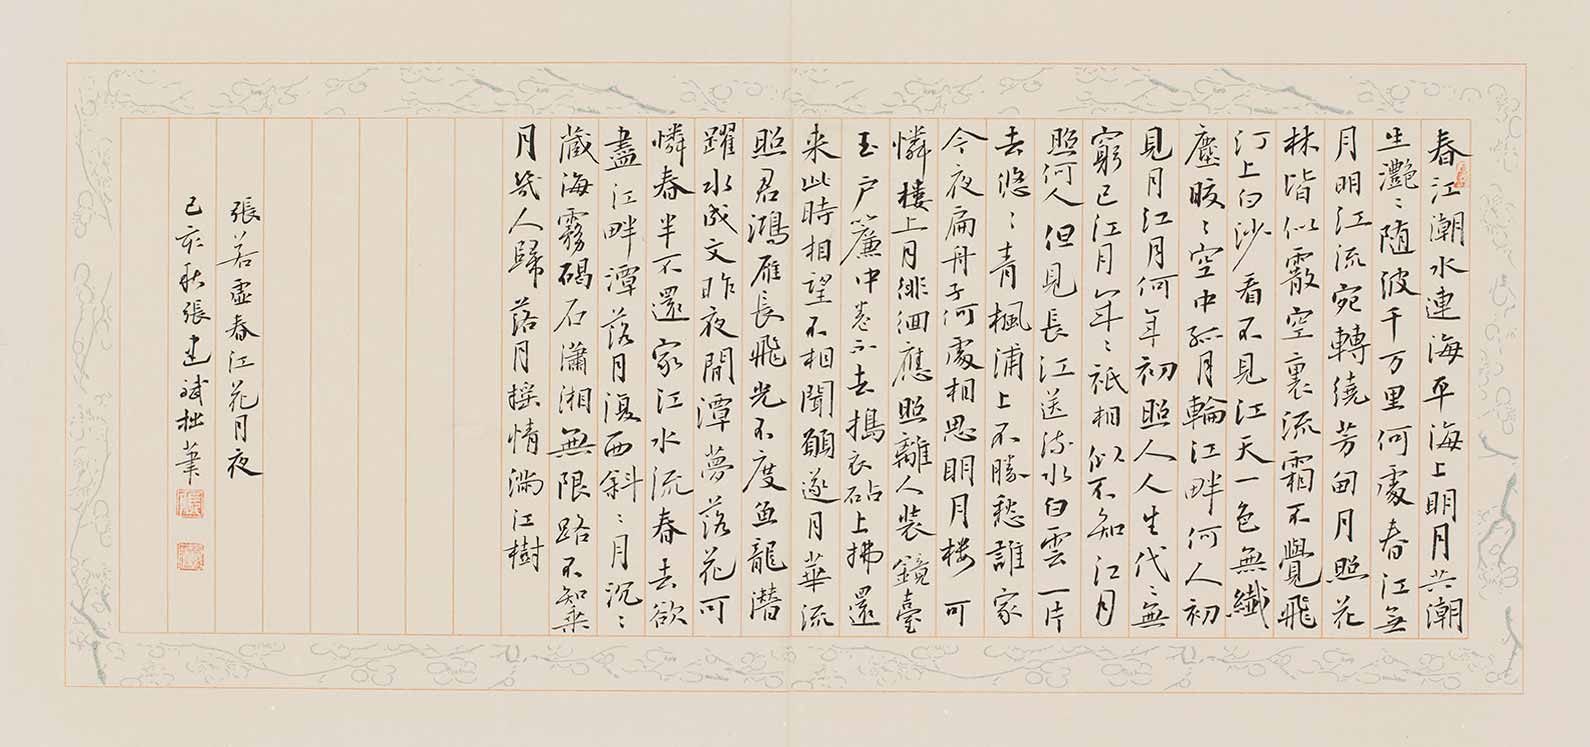 春江潮水連海平海上明月共潮
生灔〻随波千万里何處春江無
月明江流宛轉繞芳甸月照花
林皆似霰空裏流霜不覺飛
汀上白沙看不見江天一色無纖
塵皎〻空中孤月輪江畔何人初
見月江月何年初照人人生代〻無
窮已江月年〻祇相似不知江月
照何人但見長江送流水白雲一片
去悠〻青楓浦上不勝愁誰家
今夜扁舟子何處相思明月楼可
憐樓上月徘徊應照離人装鏡臺
玉户簾中卷不去搗衣砧上拂還
来此時相望不相聞願逐月華流
照君鴻雁長飛光不度魚龍潜
躍水成文昨夜閒潭夢落花可
憐春半不還家江水流春去欲
盡江畔潭落月復西斜〻月沉〻
藏海霧碣石瀟湘無限路不知乘
月幾人歸落月摇情滿江樹
張若虛春江花月夜
己亥秋張建斌拙筆